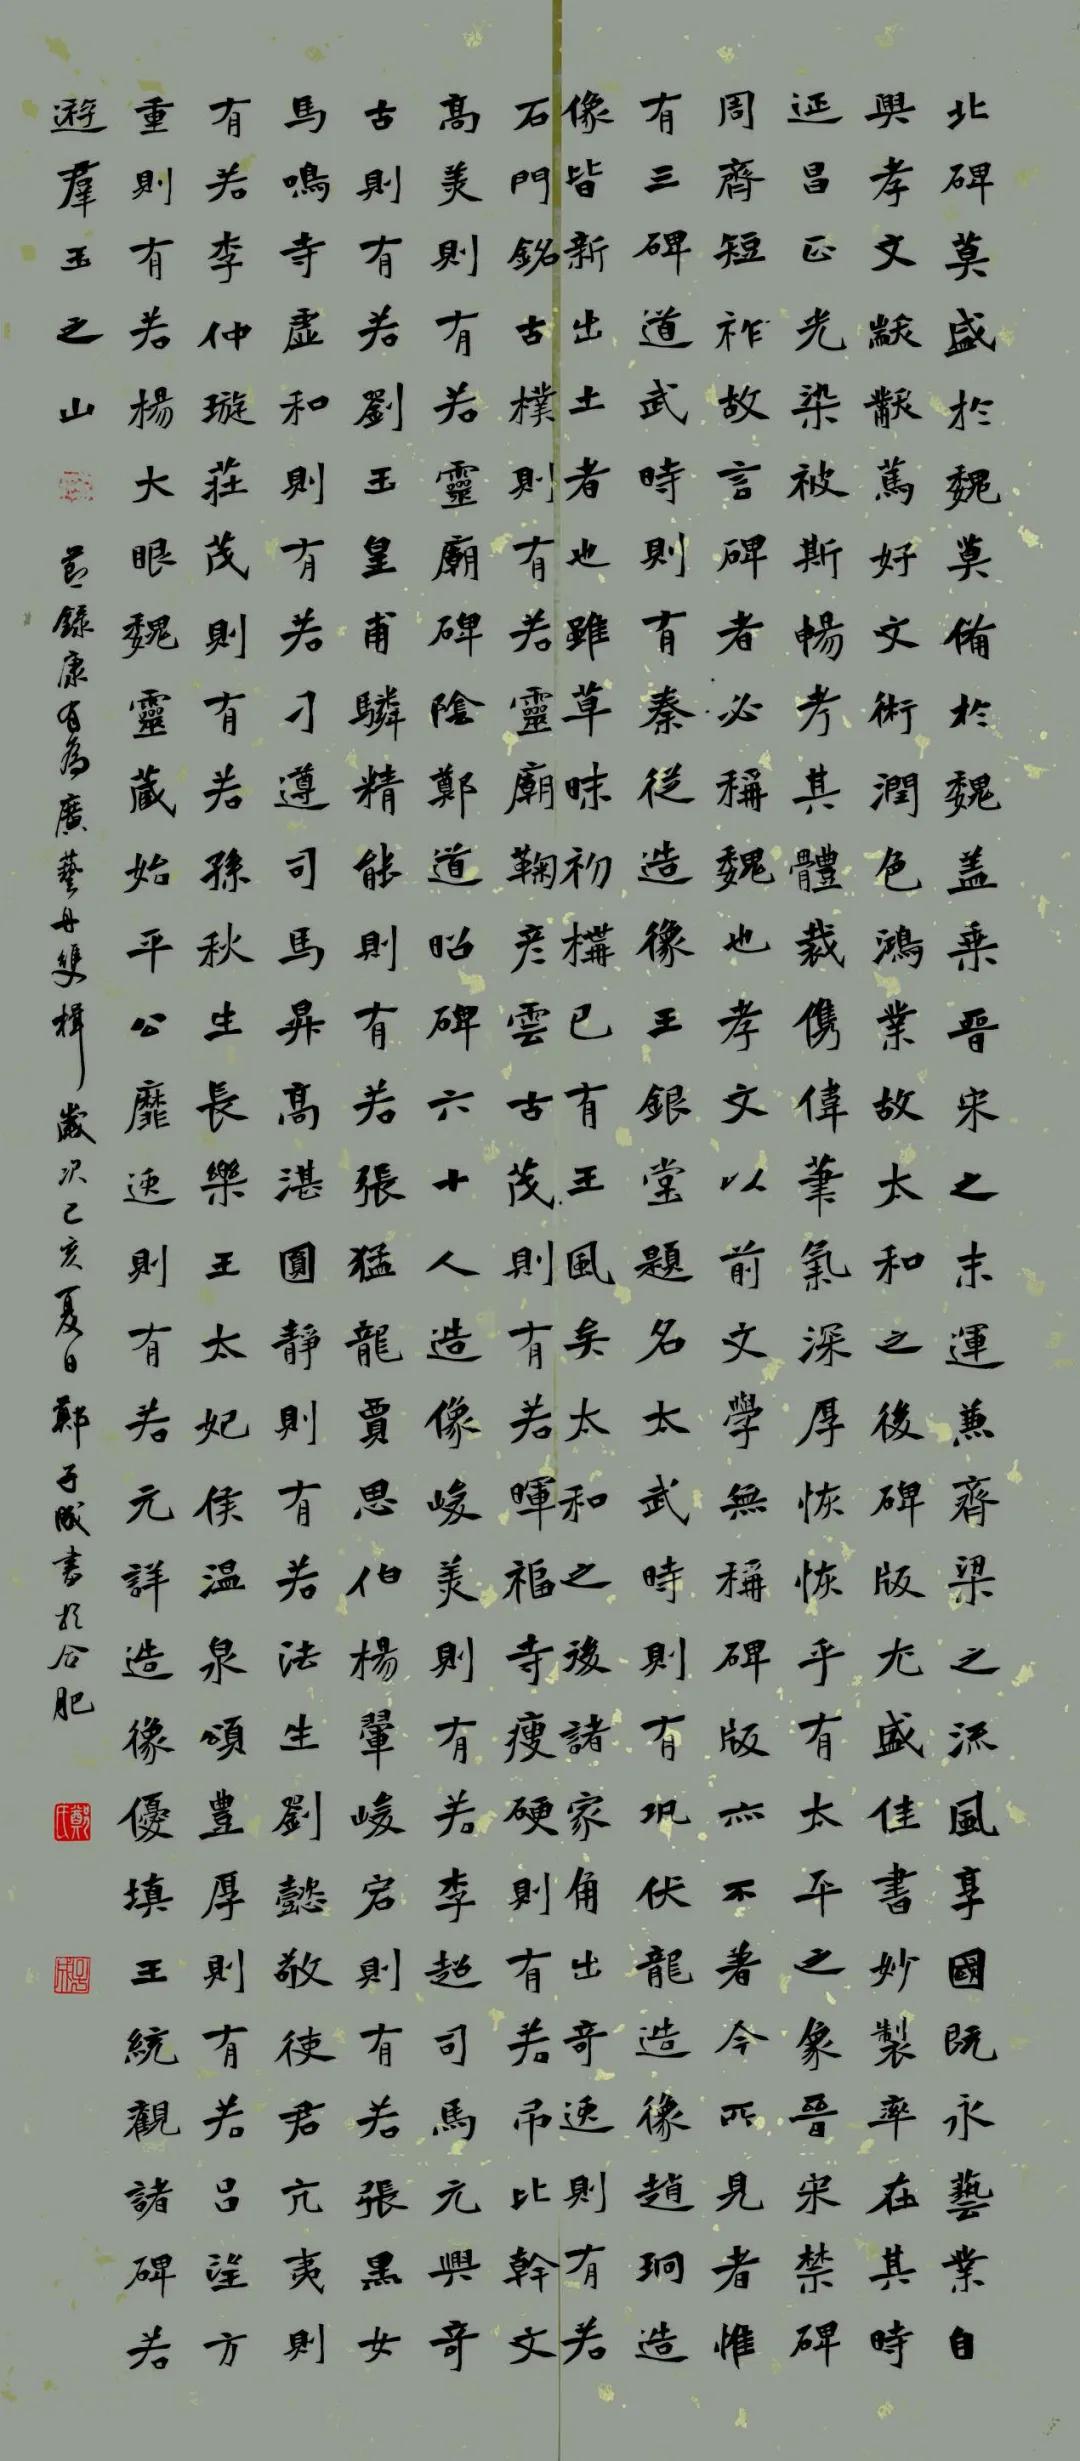 北碑莫盛於魏莫備於魏蓋乘晉宋之末運兼齊梁之流風享國既永藝業自
興孝文黼黻篤好文術潤色鴻業故太和之後碑版尤盛佳書妙製率在其時
延昌正光染被斯暢考其體裁儁偉筆氣深厚恢恢乎有太平之象晉宋禁碑
周齊短祚故言碑者必稱魏也孝文以前文學無稱碑版亦不著今所見者惟
有三碑道武時則有秦從造像王銀堂題名太武時則有巩伏龍造像趙珦造
像皆新出土者也雖草昧初構已有王風矣太和之後諸家角出奇逸則有若
石門銘古樸則有若靈廟鞠彥雲古茂則有若暉福寺瘦硬則有若吊比幹文
高美則有若靈廟碑陰鄭道昭碑六十人造像峻美則有若李超司馬元興奇
古則有若劉玉皇甫驎精能則有若張猛龍賈思伯楊翬峻宕則有若張黑女
馬鳴寺虛和則有若刁遵司馬昇高湛圓靜則有若法生劉懿敬使君亢夷則
有若李仲璇莊茂則有若孫秋生長樂王太妃侯溫泉頌豐厚則有若呂望方
重則有若楊大眼魏靈藏始平公靡逸則有若元詳造像優填王統觀諸碑若
遊羣玉之山 節錄康有為廣藝舟雙楫 歲次己亥夏日鄭子成書於合肥
鄭氏